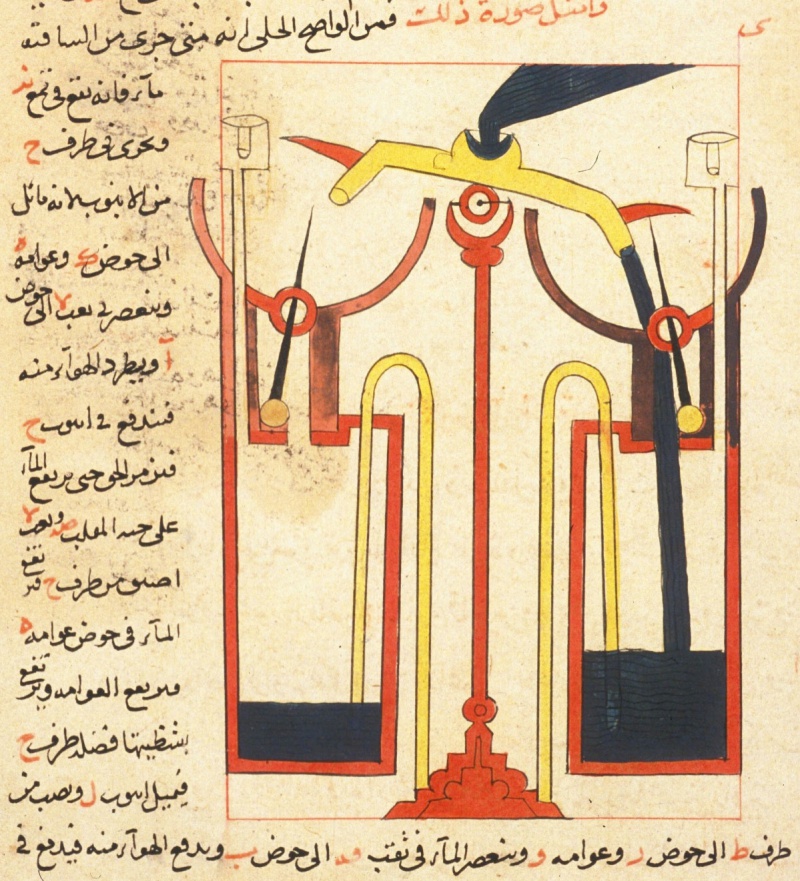 وامثل صورة ذلك فمن الواضح الجلي انه متى جرى من الساقية
ماء فانه يقع في قمع
ويجري في طرف ح
من الانبوب لانه مائل
الى حوض وعوامة ه
وينعصر في ثقب الى حوض
ا ويطرد الهواء منه
فيندفع في انبوب ح
فيزمر الى حتى يرتفع الماء
على
اضيق من طرف ح
الماء في حوض عوامة ه
العوامة
بشظيتها فضلة طرف ح
فيميل انبوب ل ويصب من
طرف ط الى حوض ر وعوامة و وينعصر الماء في ثقب الى حوض ب ويدفع الهواء منه فيدفع في